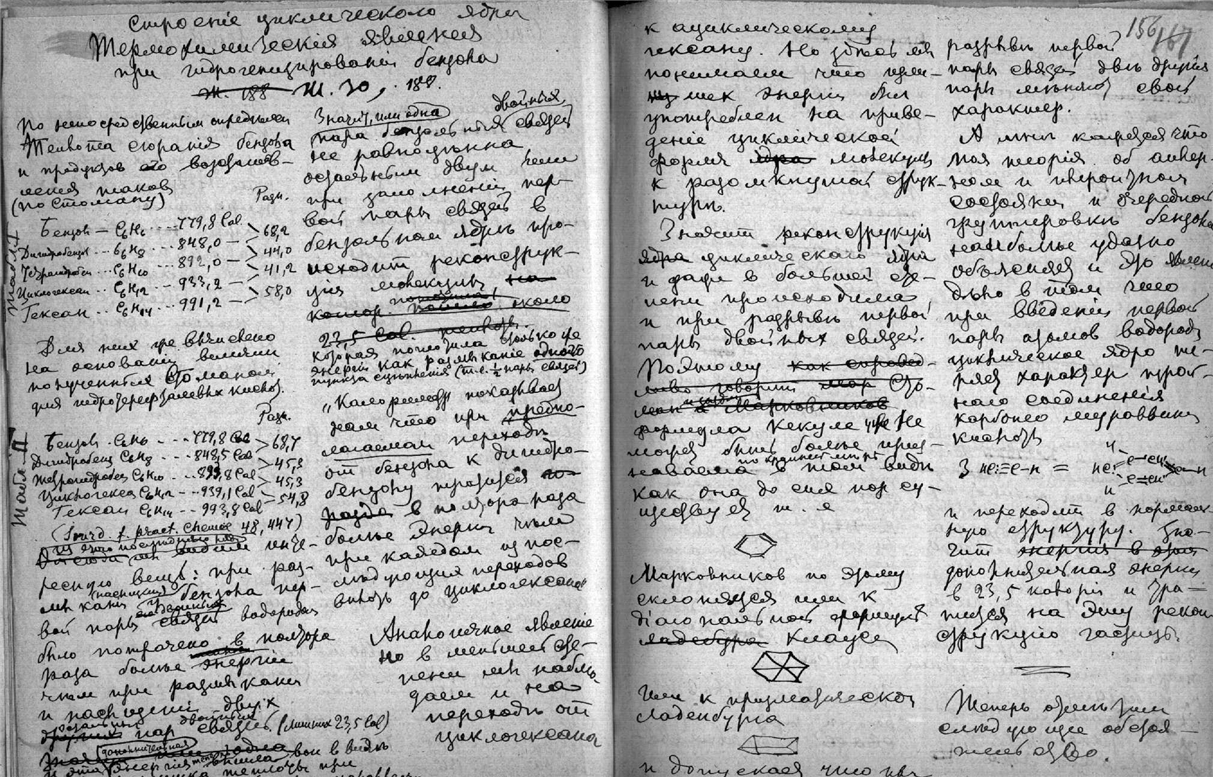 Строеніе циклическаго ядра
Термохимическія явленія
при гидрогенизированіи бензола
Ж. 188 Ж. 30, . 188.
По непосредственным определен
Теплота сгоранія бензола
и продуктов его
таков
(по Стоману)
Разн.
Бензол — C6H6 ..... 779,8 Cal > 68,2
Дигидробенз ... C6H8 — 848,0 — > 44,0
Тетрагидробен .. C6H10 — 892,0 — > 41,2
Циклогексан .. C6H12 — 933,2 — > 58,0
Гексан .. C6H14 — 991,2 —
Табл I
Для них же вычислено
на основаніи величин
полученных Стоманом
для гидротерефталевых кислот.
Разн.
Бензол. C6H6 --- 779,8 Cal > 68,7
Дигидробенз C6H8 — 848,5 Cal > 45,3
Тетрагидробен C6H10 — 893,8 Cal > 45,3
Циклогекса C6H12 — 939,1 Cal > 54,8
Гексан C6H14 — 993,8 Cal
Табл. II
(Journ. f. pract. Chemie 48, 447)
мы видим инте-
ресную вещь: при раз-
мыкании бензола пер-
вой пары связей водородом
было потрачено в полтора
раза больше энергіи
чем при размыкани
и насыщеніи двух
остальных двойных
пар связей (лишних 23,5 Cal)
дополнительная
Значит, или одна двойных
пара бензольных связей
не равноценна
остальным двум или
при заполнении пер-
вой пары связей в
бензольном ядре про-
исходит реконструк-
ция молекулы, на
около
23,5 Cal.
которая поглотила столько же
энергіи как размыканіе одного
пункта сцепленія (т.е. ½ пары связей)
„Калориметр показывает
нам что при предпо-
лагаемом переходе
от бензола к дигидро-
бензолу тратится
в полтора раза
больше энергіи чем
при каждом из пос-
ледующих переходов
вплоть до циклогексана
Аналогичное явленіе
но в меньшей сте-
пени мы наблю-
даем и на
переходе от
циклогексана
к ациклическому
гексану. Но здесь мы
понимаем что изли-
шек энергіи был
употреблен на приве-
деніе циклической
формы ядра молекулы
к разомкнутой струк-
туре.
Значит реконструкція
ядра циклическаго ядра
и даже в большей сте-
пени происходила
и при разрыве первой
пары двойных связей.
Поэтому как справед-
ливо говорит
Марковников
формула Кекуле уже не
может быть более приз-
наваема по крайней мере в том виде
как она до сих пор су-
ществует т. е
Марковников по этому
склоняется или к
діагональной формуле
Ладенбурга Клауса
Или к призматической
Ладенбурга
и допускает что при
156
167
разрыве первой
пары связей две другія
пары меняют свой
характер.
А мне кажется что
моя теорія об
состояніи и очередной
группировки бензола
наиболее удачно
объясняет и это явлен
дело в том что
при введеніи первой
пары атомов водорода
циклическое ядро те-
ряет характер трой-
ного соединенія
карбонео муравьин
кислоты
и переходит в нормаль
ную структуру. Зна-
чит энергия в
дополнительная энергия
в 23,5 калорій и тра-
тится на эту рекон
струкцію частицы.
Теперь отметим
следующее обстоя-
тельство.